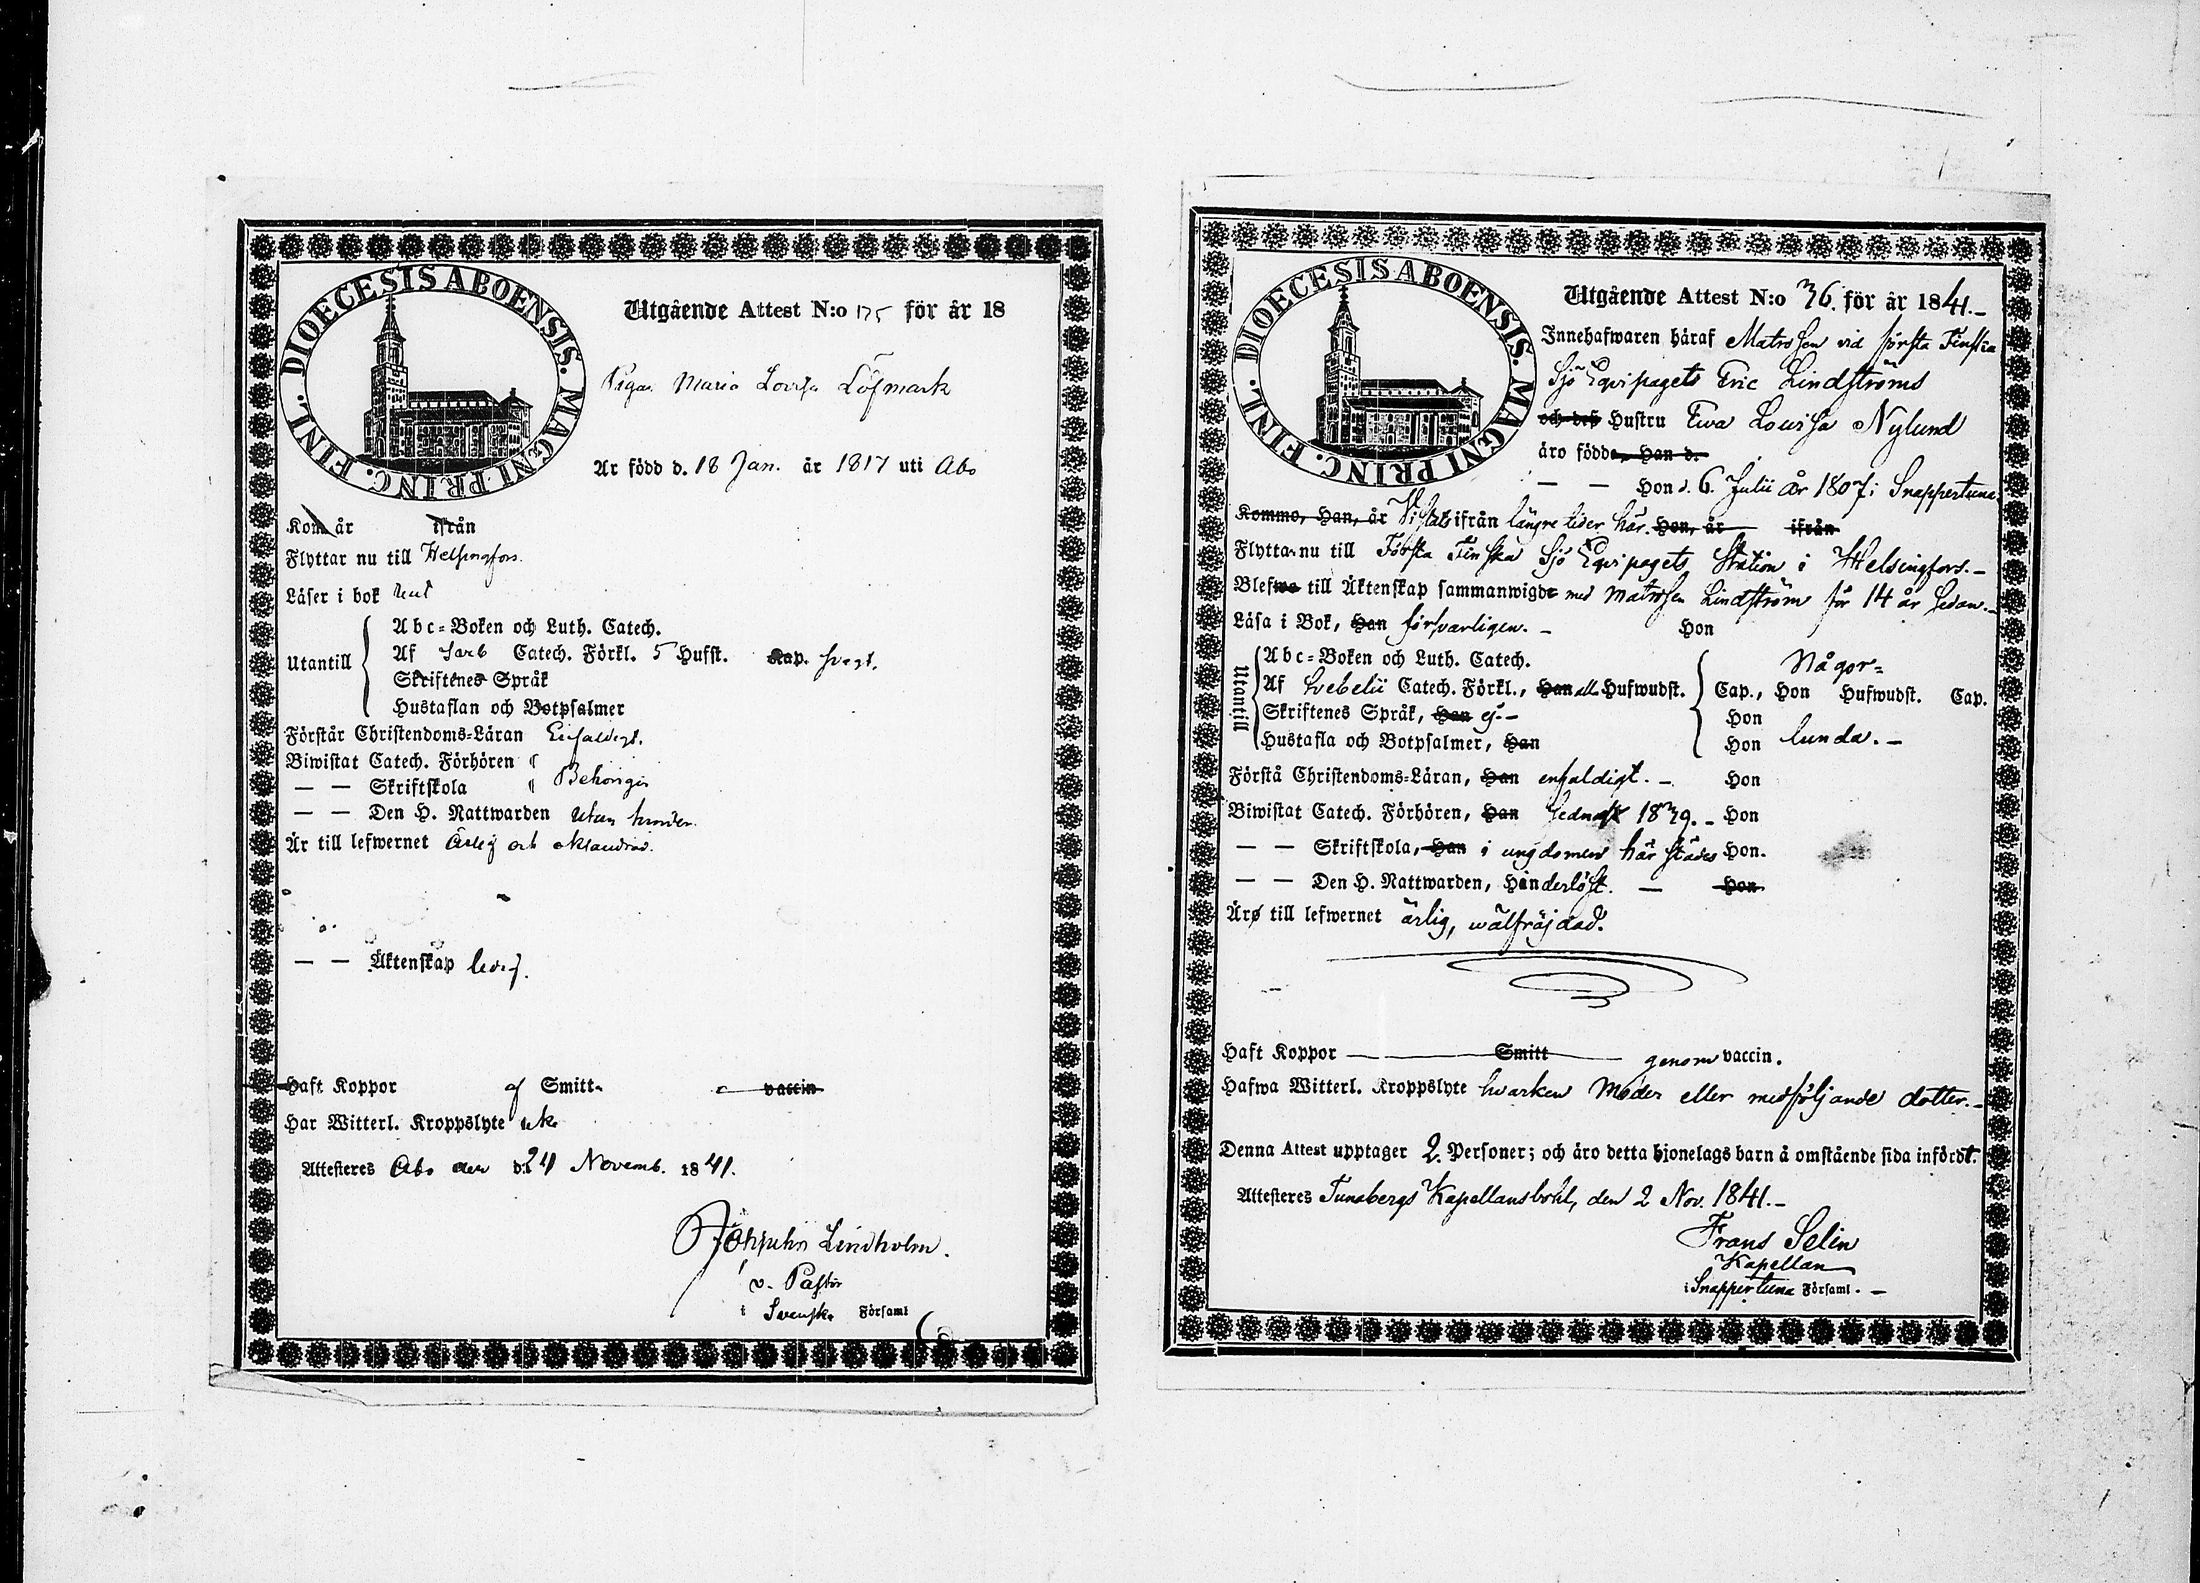 DIOECESIS ABOENSIS. MAGNI PRINC. FINL.
Utgående Attest N:o 175 för år 18
Pigan Maria Lovisa Löfmark
Är född d. 18 Jan. år 1817 uti Åbo
Kom år ifrån
Flyttar nu till Helsingfors.
Läser i bok rent
Utantill
Abc-Boken och Luth. Catech.
Af Catech. Förkl. 5 Hufst. Kap. svagt.
Skriftenes Språk
Hustaflan och Botpsalmer
Förstår Christendoms-Läran Enfaldigt.
Biwistat Catech. Förhören
— — Skriftskola Behörigen
— — Den H. Nattwarden utan hinder.
Är till lefwernet Ärlig och oklandrad.
— — Äktenskap ledig.
Haft Koppor af Smitt. vaccin
Har Witterl. Kroppslyte
Attesteres Åbo den d. 24 Novemb. 1841.
Lindholm.
v. Pastor
i Svenska Församl
DIOECESIS ABOENSIS. MAGNI PRINC. FINL.
Utgående Attest N:o 36. för år 1841.-
Innehafwaren häraf Matrosen vid första Finska
Sjö Equipagets Eric Lindströms
och deß Hustru Ewa Lovisa Nylund
äro födde, Han d.
— — Hon d. 6. Julii År 1807 i Snappertuna.
Kommo, Han, år Vistats ifrån längre tider här. Hon, år ifrån
Flytta nu till Första Finska Sjö Equipagets Station i Helsingfors.-
Blefwo till Äktenskap sammanwigde med Matrosen Lindström för 14 år sedan.-
Läsa i Bok, Han försvarligen.- Hon
Utantill
Abc-Boken och Luth. Catech. Någor-
Af Svebelii Catech. Förkl., Han alla Hufwudst. Cap., Hon Hufwudst. Cap.
Skriftenes Språk, Han ej.- Hon
Hustafla och Botpsalmer, Han Hon lunda.-
Förstå Christendoms-Läran, Han enfaldigt.- Hon
Biwistat Catech. Förhören, Han sednast 1839.- Hon
— — Skriftskola, Han i ungdomen härstädes Hon.
— — Den H. Nattwarden, Hinderlöst. — Hon
Äro till lefwernet ärlig, wälfräjdad.
Haft Koppor — Smitt — genom vaccin.
Hafwa Witterl. Kroppslyte hvarken Moder eller medföljande dotter.-
Denna Attest upptager 2. Personer; och äro detta hjonelags barn å omstående sida infördt.
Attesteres Tunabergs Kapellansbohl, den 2 Nov. 1841.-
Frans Selin
Kapellan
i Snappertuna Församl.-